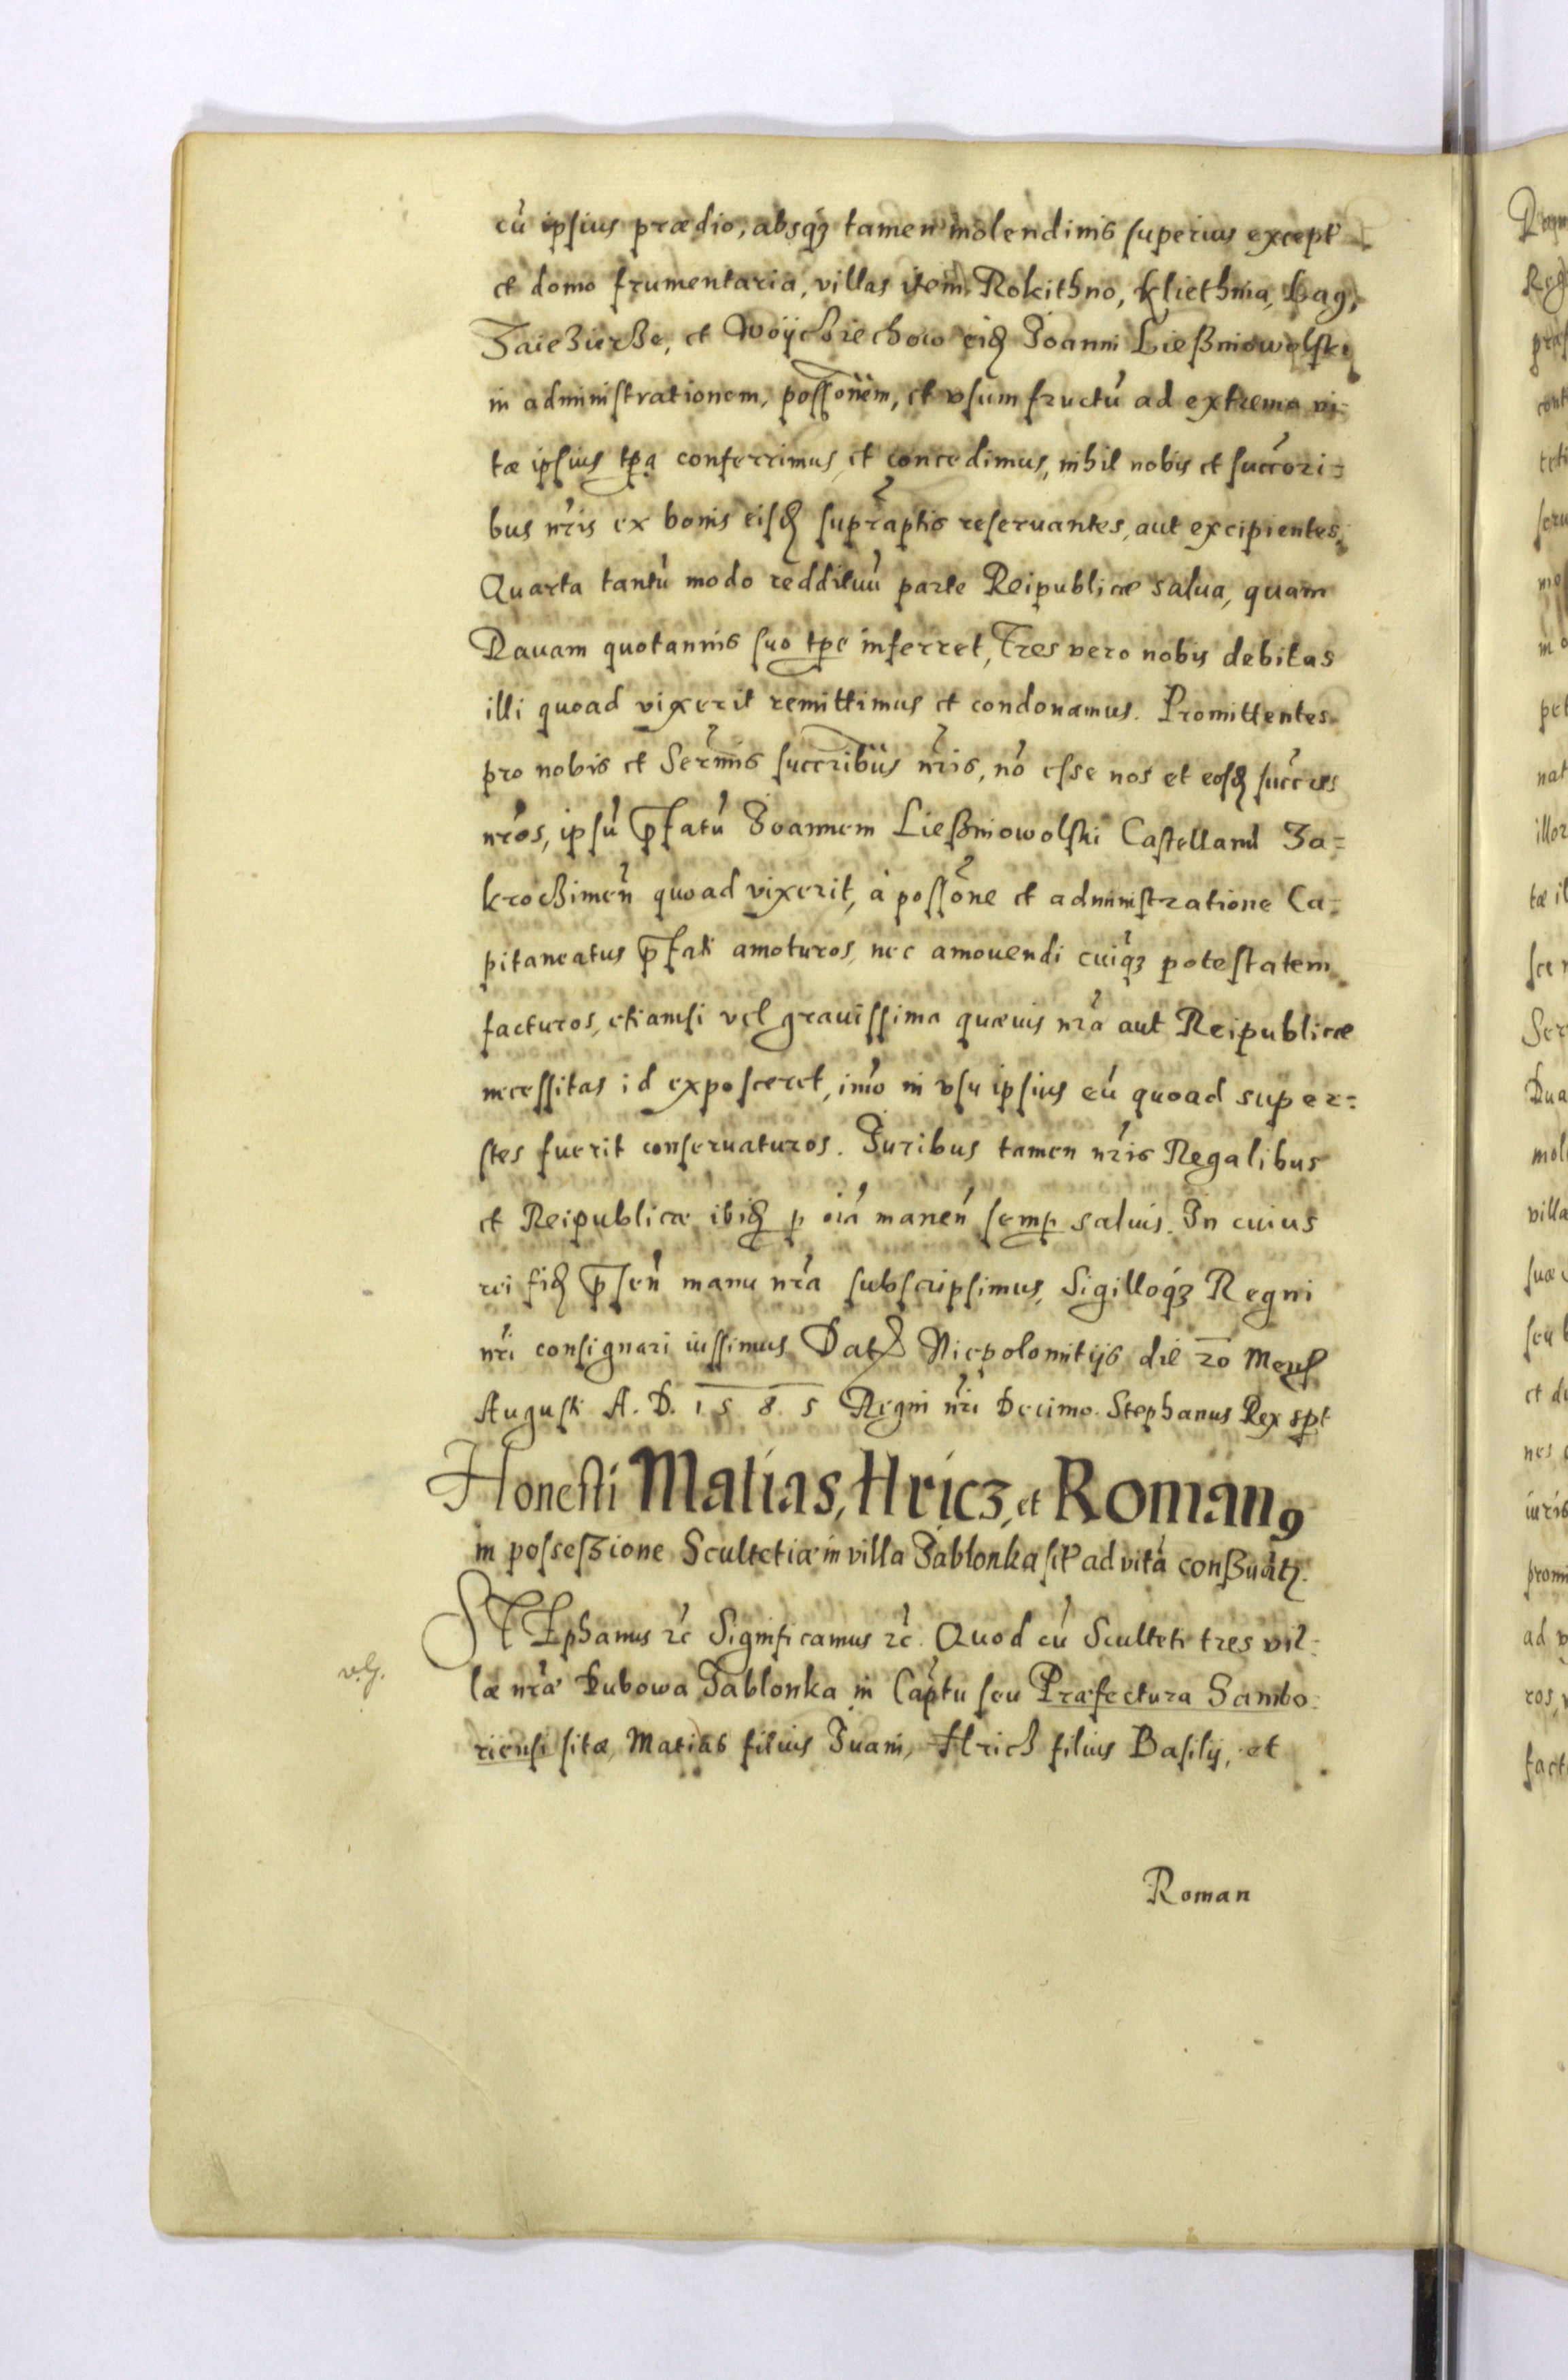 cu᷃ ipsius prædio, absqꝫ tamen molendinis superius except
et domo frumentaria, villas item Rokithno, Kliethnia, Bag,
Zaiezierze, et Woÿcziechow eidꝫ Joanni Lieszniowolski
in administrationem, possonem, et vsumfructu᷃ ad extrema vi=
tæ ipsius tpa conferrimus, et concedimus, nihil nobis et succori=
bus nr̃is ex bonis eisdꝫ supraptis reseruantes, aut excipientes,
Quarta tantu᷃ modo reddituu᷃ parte Reipublicæ salua, quam
Rauam quotannis suo tpe inferret, Tres vero nobis debitas
illi quoad vixerit remittimus et condonamus. Promittentes
pro nobis et Sermis succribus nr̃is, no᷃ esse nos et eosdꝫ succes
nr̃os, ipsu᷃ p̄fatu᷃ Joannem Lieszniowolski Castellanu᷃ Za=
kroczimen᷃ quoad vixerit, à possone et administratione Ca=
pitaneatus p̄fati amoturos, nec amouendi cuiqꝫ potestatem
facturos, etiamsi vel grauissima quæuis nr̃a aut Reipublicæ
necessitas id exposceret, imo in vsu ipsius eu᷃ quoad super=
stes fuerit conseruaturos. Juribus tamen nr̃is Regalibus
et Reipublicæ ibidꝫ p oĩa manen᷃ semp saluis. In cuius
rei fidꝫ p̄sen᷃ manu nr̃a subscripsimus, Sigilloqꝫ Regni
nr̃i consignari iussimus Dat Niepolomitijs die 20 Mens
Augusti A. D. 1585 Regni nr̃i Decimo. Stephanus Rex spt
Honesti Matias, Hricz, et Romanꝯ
in possessione Scultetiæ in villa Jablonka sit᷃ ad vita᷃ conßuātꝫ.
STEphanus ꝛc Significamus ꝛc. Quod cu᷃ Sculteti tres vil=
læ nr̃æ Dubowa Jablonka in Captu seu Præfectura Sambo=
riensi sitæ, Matias filius Iuani, Hricz filius Basilij, et
Roman